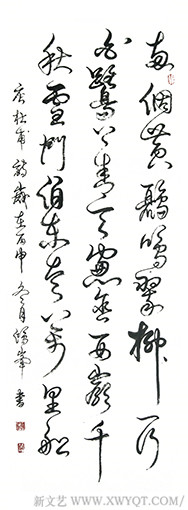 兩個黄鸝鳴翠柳一行
白鷺上青天窗含西嶺千
秋雪門泊東吴萬里船
唐杜甫詩歲在丙申冬月 書
新文艺 WWW.XWYQT.COM